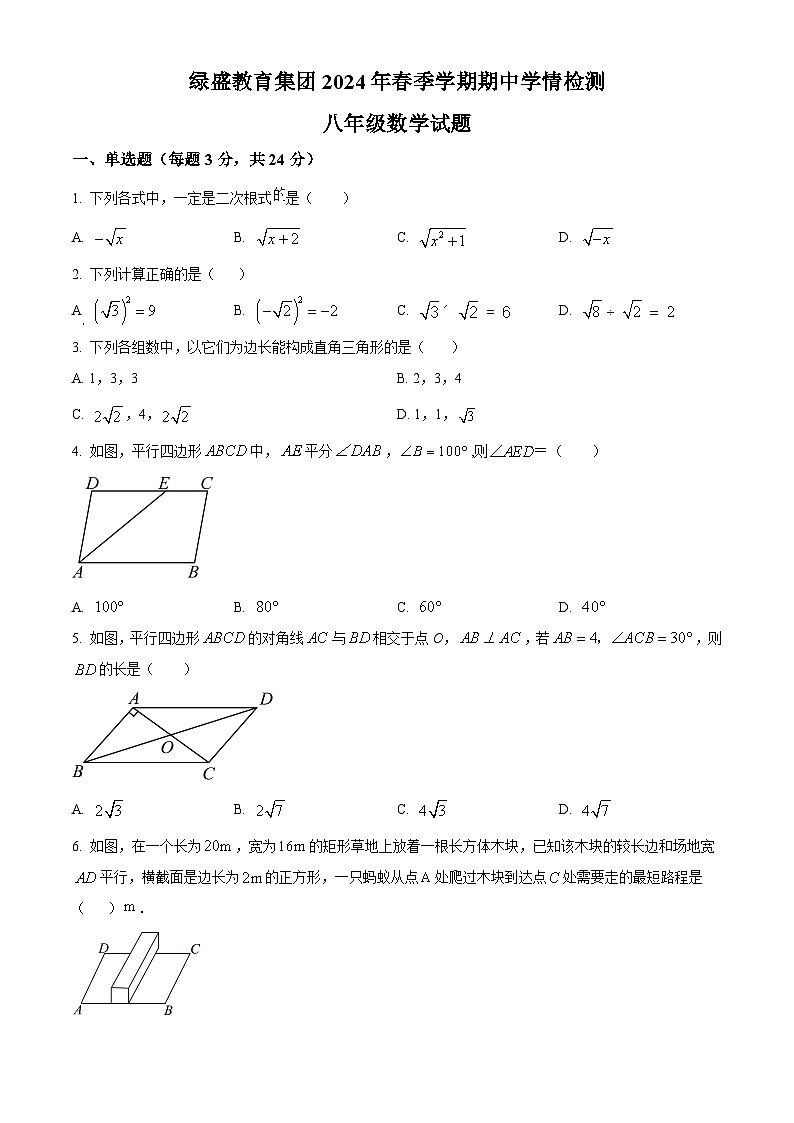 绿盛教育集团 2024 年春季学期期中学情检测
八年级数学试题
一、单选题（每题 3 分，共 24 分）
1. 下列各式中，一定是二次根式的是（　　）
A. −√x　B. √(x+2)　C. √(x²+1)　D. √(−x)
2. 下列计算正确的是（　　）
A. (√3)² = 9　B. (−√2)² = −2　C. √3 ´ √2 = 6　D. √8 ÷ √2 = 2
3. 下列各组数中，以它们为边长能构成直角三角形的是（　　）
A. 1，3，3　B. 2，3，4
C. 2√2，4，2√2　D. 1，1，√3
4. 如图，平行四边形 ABCD 中，AE 平分∠DAB，∠B = 100°,则∠AED＝（　　）
D E C
A B
A. 100°　B. 80°　C. 60°　D. 40°
5. 如图，平行四边形 ABCD 的对角线 AC 与 BD 相交于点 O，AB ⊥ AC，若 AB = 4，∠ACB = 30°，则
BD 的长是（　　）
A D
O
B C
A. 2√3　B. 2√7　C. 4√3　D. 4√7
6. 如图，在一个长为 20m，宽为 16m 的矩形草地上放着一根长方体木块，已知该木块的较长边和场地宽
AD 平行，横截面是边长为 2m 的正方形，一只蚂蚁从点 A 处爬过木块到达点 C 处需要走的最短路程是
（　　）m．
D C
A B